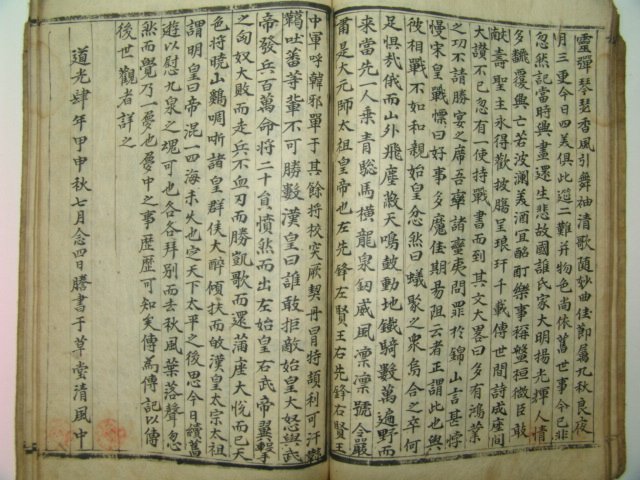 靈彈琴琵香風引舞袖清歌隨妙曲佳節屬九秋良夜
月三更今日四美俱此筵二難并物色尚依舊世事今已非
忽然記當時興盡還生悲故國誰氏家大明揚光輝人情
多飜覆興亡若波瀾美酒宜酩酊樂事稱盤桓微臣敢
献壽聖主永得歡披腸呈琅玕千載傳世間詩成座間
大讚不已忽有一使持戰書而到其文大畧曰多有鴻業
之功不請勝宴之席吾率諸蠻夷問罪於錦山言甚悖
慢宋皇戰慄曰好事多魔佳期易阻云者正謂此也與
彼相戰不如和親始皇忿然曰蟻聚之衆烏合之卒何
足惧哉俄而山外飛塵蔽天鳴鼓動地鐵騎數萬遍野而
來當先一人乗青驄馬橫龍泉釼威風凛凛號令嚴
肅是大元師太祖皇帝也左先鋒左賢王右先鋒右賢王
中軍呼韓邪單于其餘將校突厥契丹冒特頡利可汗靺
鞨吐蕃等輩不可勝數漢皇曰誰敢拒敵始皇大怒與武
帝發兵百萬命将二十員憤然而出左始皇右武帝翼擊
之匈奴大敗而走兵不血刃而勝凱歌而還蒲座大悅而已天
色将曉山鷄啁哳諸皇群伕大醉傾扶而散漢皇太宗太祖
謂明皇曰帝混一四海未乆也定天下太平之後思今日續
遊以慰九泉之塊可也各各拜别而去秋風葉落聲忽
然而覺乃一夢也夢中之事歷歷可知矣傳爲傳記以傳
後世觀者詳之
道光肆年甲申秋七月念四日謄書于草堂清風中